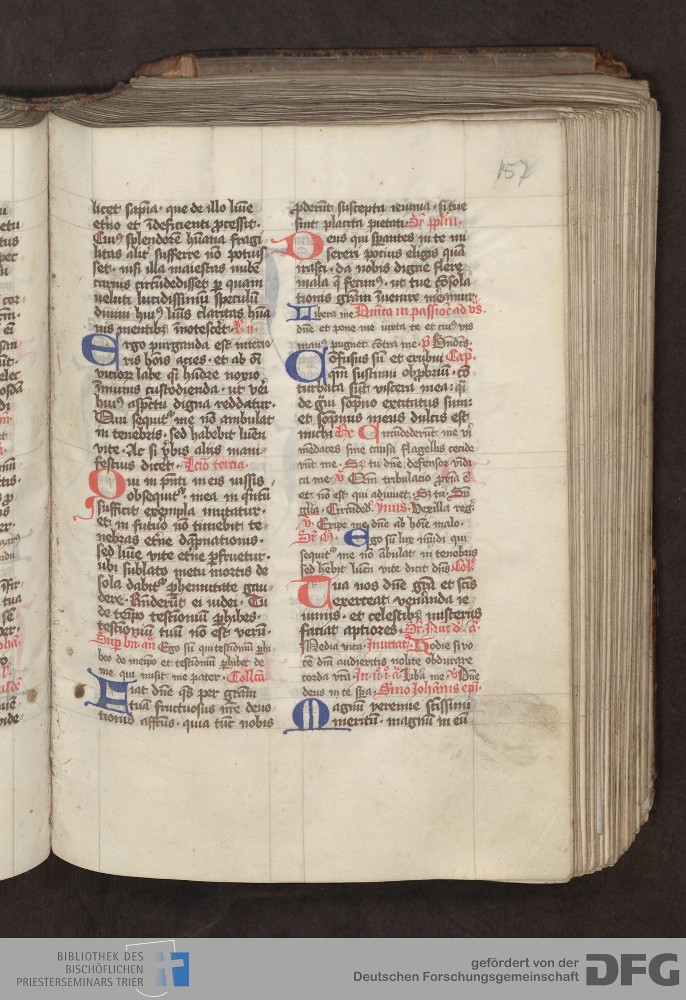 157
licet sapīa · que de illo luīe
et̄no et īdeficienti ꝓcessit ·
Cuiꝰ splendorē hūana fragi
litas aliꝰ sufferre nō potuis
set · nisi illa maiestas nube
carnis circūdedisset ꝑ quam
veluti lucidissimū speculū
diuini huiꝰ luīs claritas hūa
nis mentibꝫ īnotesceret · R̄ ij ·
Ergo purganda est interio
ris hoīs acies · et ab oī
vicioꝝ labe
īmunis custodienda · ut veri
huiꝰ aspectu digna reddatur ·
Qui sequitur me nō ambulat
in tenebris · sed habebit lumē
vite · Ac si ybis aliis mani
festius dicēt · Lcio tercia ·
Qui in pn̄ti meis iussis
obsequitur · mea in
sufficit exempla imitatur ·
et in futuro nō timebit te
nebras et̄ne dāpnationis ·
sed lūen vite et̄ne ꝑfruetur ·
ubi sublato metu mortis de
sola dabitur ꝑhennitate gau
dere · Rn̄derūt ei iudei · Tu
de teipo testionūi ꝑhibes ·
testioniū tuū nō est verū ·
Suꝑ bn̄ · an̄ Ego sū qui testioniū ꝑhi
beo de meipō et testioniū ꝑhibet de
me qui misit me pater · Collcā
Fiat dn̄e qs̄ per grām
tuā fructuosus nr̄e deuo
tionis affcūs · quia tūc nobis
ꝓderūt suscepta ieiunia · si tue
sint placita pietati ·
Deus qui sꝑantes in te mi
sereri pocius eligis quā
irasci · da nobis digne flere
mala q̄ fecimꝰ · ut tue cōsola
tionis grām īuenire mereamur ·
Libera me Dnīca in passioē ad vs̄ ·
dn̄e et pone me iuxta te et cuiꝰ vis
manꝰ pugnet cōtra me · p̄
Cōfusus sū et erubui Cap̄ ·
qm̄ sustinui obꝓbriū · cō
turbata sūt viscera mea · qi
de gui sopno excitatus sum:
et sopnus meus dulcis est
michi R̄ Circūdederūt me vi
ri mēdaces sine causa flagellis cecide
rūt me · Sꝫ tu dn̄e defensor vīdi
ca me · v̄ Qm̄ tribulatio ꝓxīa ē
et nō est qui adiuuet · Sꝫ tu ·
gl̄ia · Circūded̄ · ymūs · Vexilla reg̅
v̄ · Eripe me dn̄e ab hoīe malo ·
Ego sū lux mūdi qui
sequitur me nō ābulat in tenebris
sed habebit lūen vite dicit dn̄s Coll̄
Tua nos dn̄e gr̄a et scīs
exerceat venāda ie
iuniis · et celestibꝫ misteriis
faciat aptiores ·
Media vita · Inuitat̄ · Hodie si vo
cē dn̄i audieritis nolite obdurare
corda vr̄a · In · i° · n° · Lib̄a me v̄ Dn̄e
deus in te · Sm̄o Iohānis ep̄i ·
Magnū yeremie scīssimi
meritū · magnū in eū
BIBLIOTHEK DES
BISCHÖFLICHEN
PRIESTERSEMINARS TRIER
gefördert von der
Deutschen Forschungsgemeinschaft
DFG